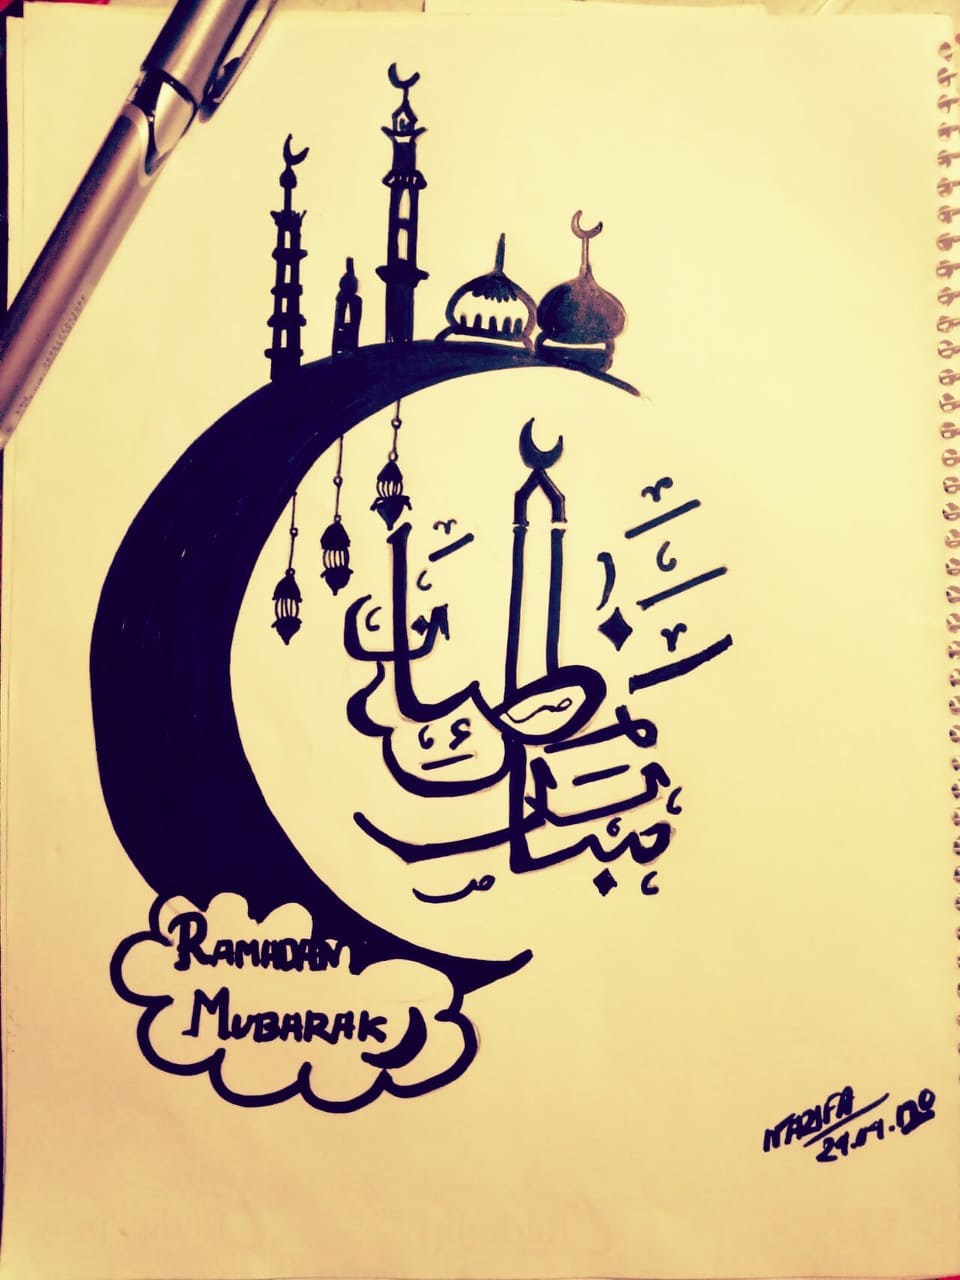 رمضان
مبارك
RAMADAN
MUBARAK
NAZIFA